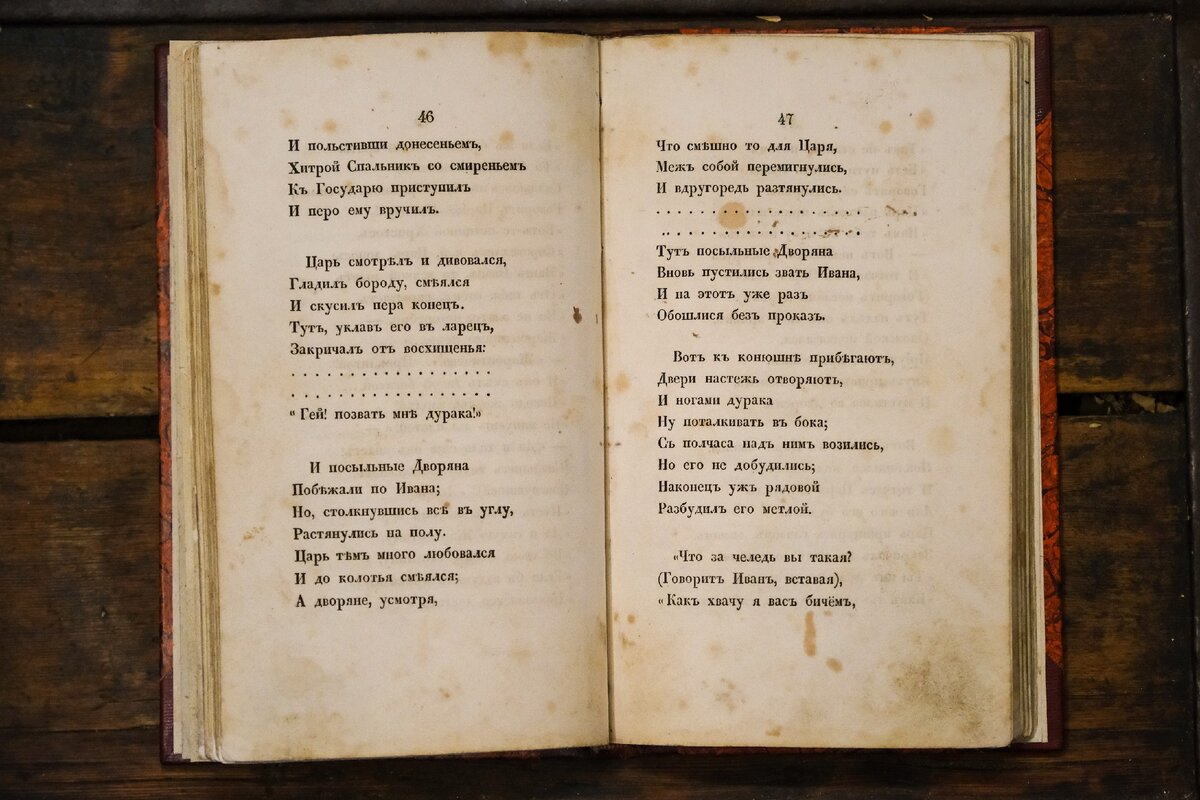 46
И польстивши донесеньемъ,
Хитрой Спальникъ со смиреньемъ
Къ Государю приступилъ
И перо ему вручилъ.
Царь смотрѣлъ и дивовался,
Гладилъ бороду, смѣялся
И скусилъ пера конецъ.
Тутъ, уклавъ его въ ларецъ,
Закричалъ отъ восхищенья:
. . . . . . . . . . . . . . . . . .
. . . . . . . . . . . . . . . . . .
“Гей! позвать мнѣ дурака!»
И посыльные Дворяна
Побѣжали по Ивана;
Но, столкнувшись всѣ въ углу,
Растянулись на полу.
Царь тѣмъ много любовался
И до колотья смѣялся;
А дворяне, усмотря,
47
Что смѣшно то для Царя,
Межъ собой перемигнулись,
И вдругоредь разтянулись.
. . . . . . . . . . . . . . . . . .
. . . . . . . . . . . . . . . . . .
Тутъ посыльные Дворяна
Вновь пустились звать Ивана,
И на этотъ уже разъ
Обошлися безъ проказъ.
Вотъ къ конюшнѣ прибѣгаютъ,
Двери настежь отворяютъ,
И ногами дурака
Ну поталкивать въ бока;
Съ полчаса надъ нимъ возились,
Но его не добудились;
Наконецъ ужъ рядовой
Разбудилъ его метлой.
«Что за челедь вы такая?
(Говоритъ Иванъ, вставая),
«Какъ хвачу я васъ бичёмъ,